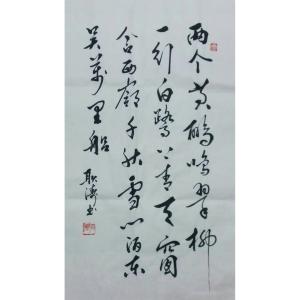 两个黄鸝鳴翠柳
一行白鷺上青天窗
含西嶺千秋雪门泊东
吴萬里船
耿涛书